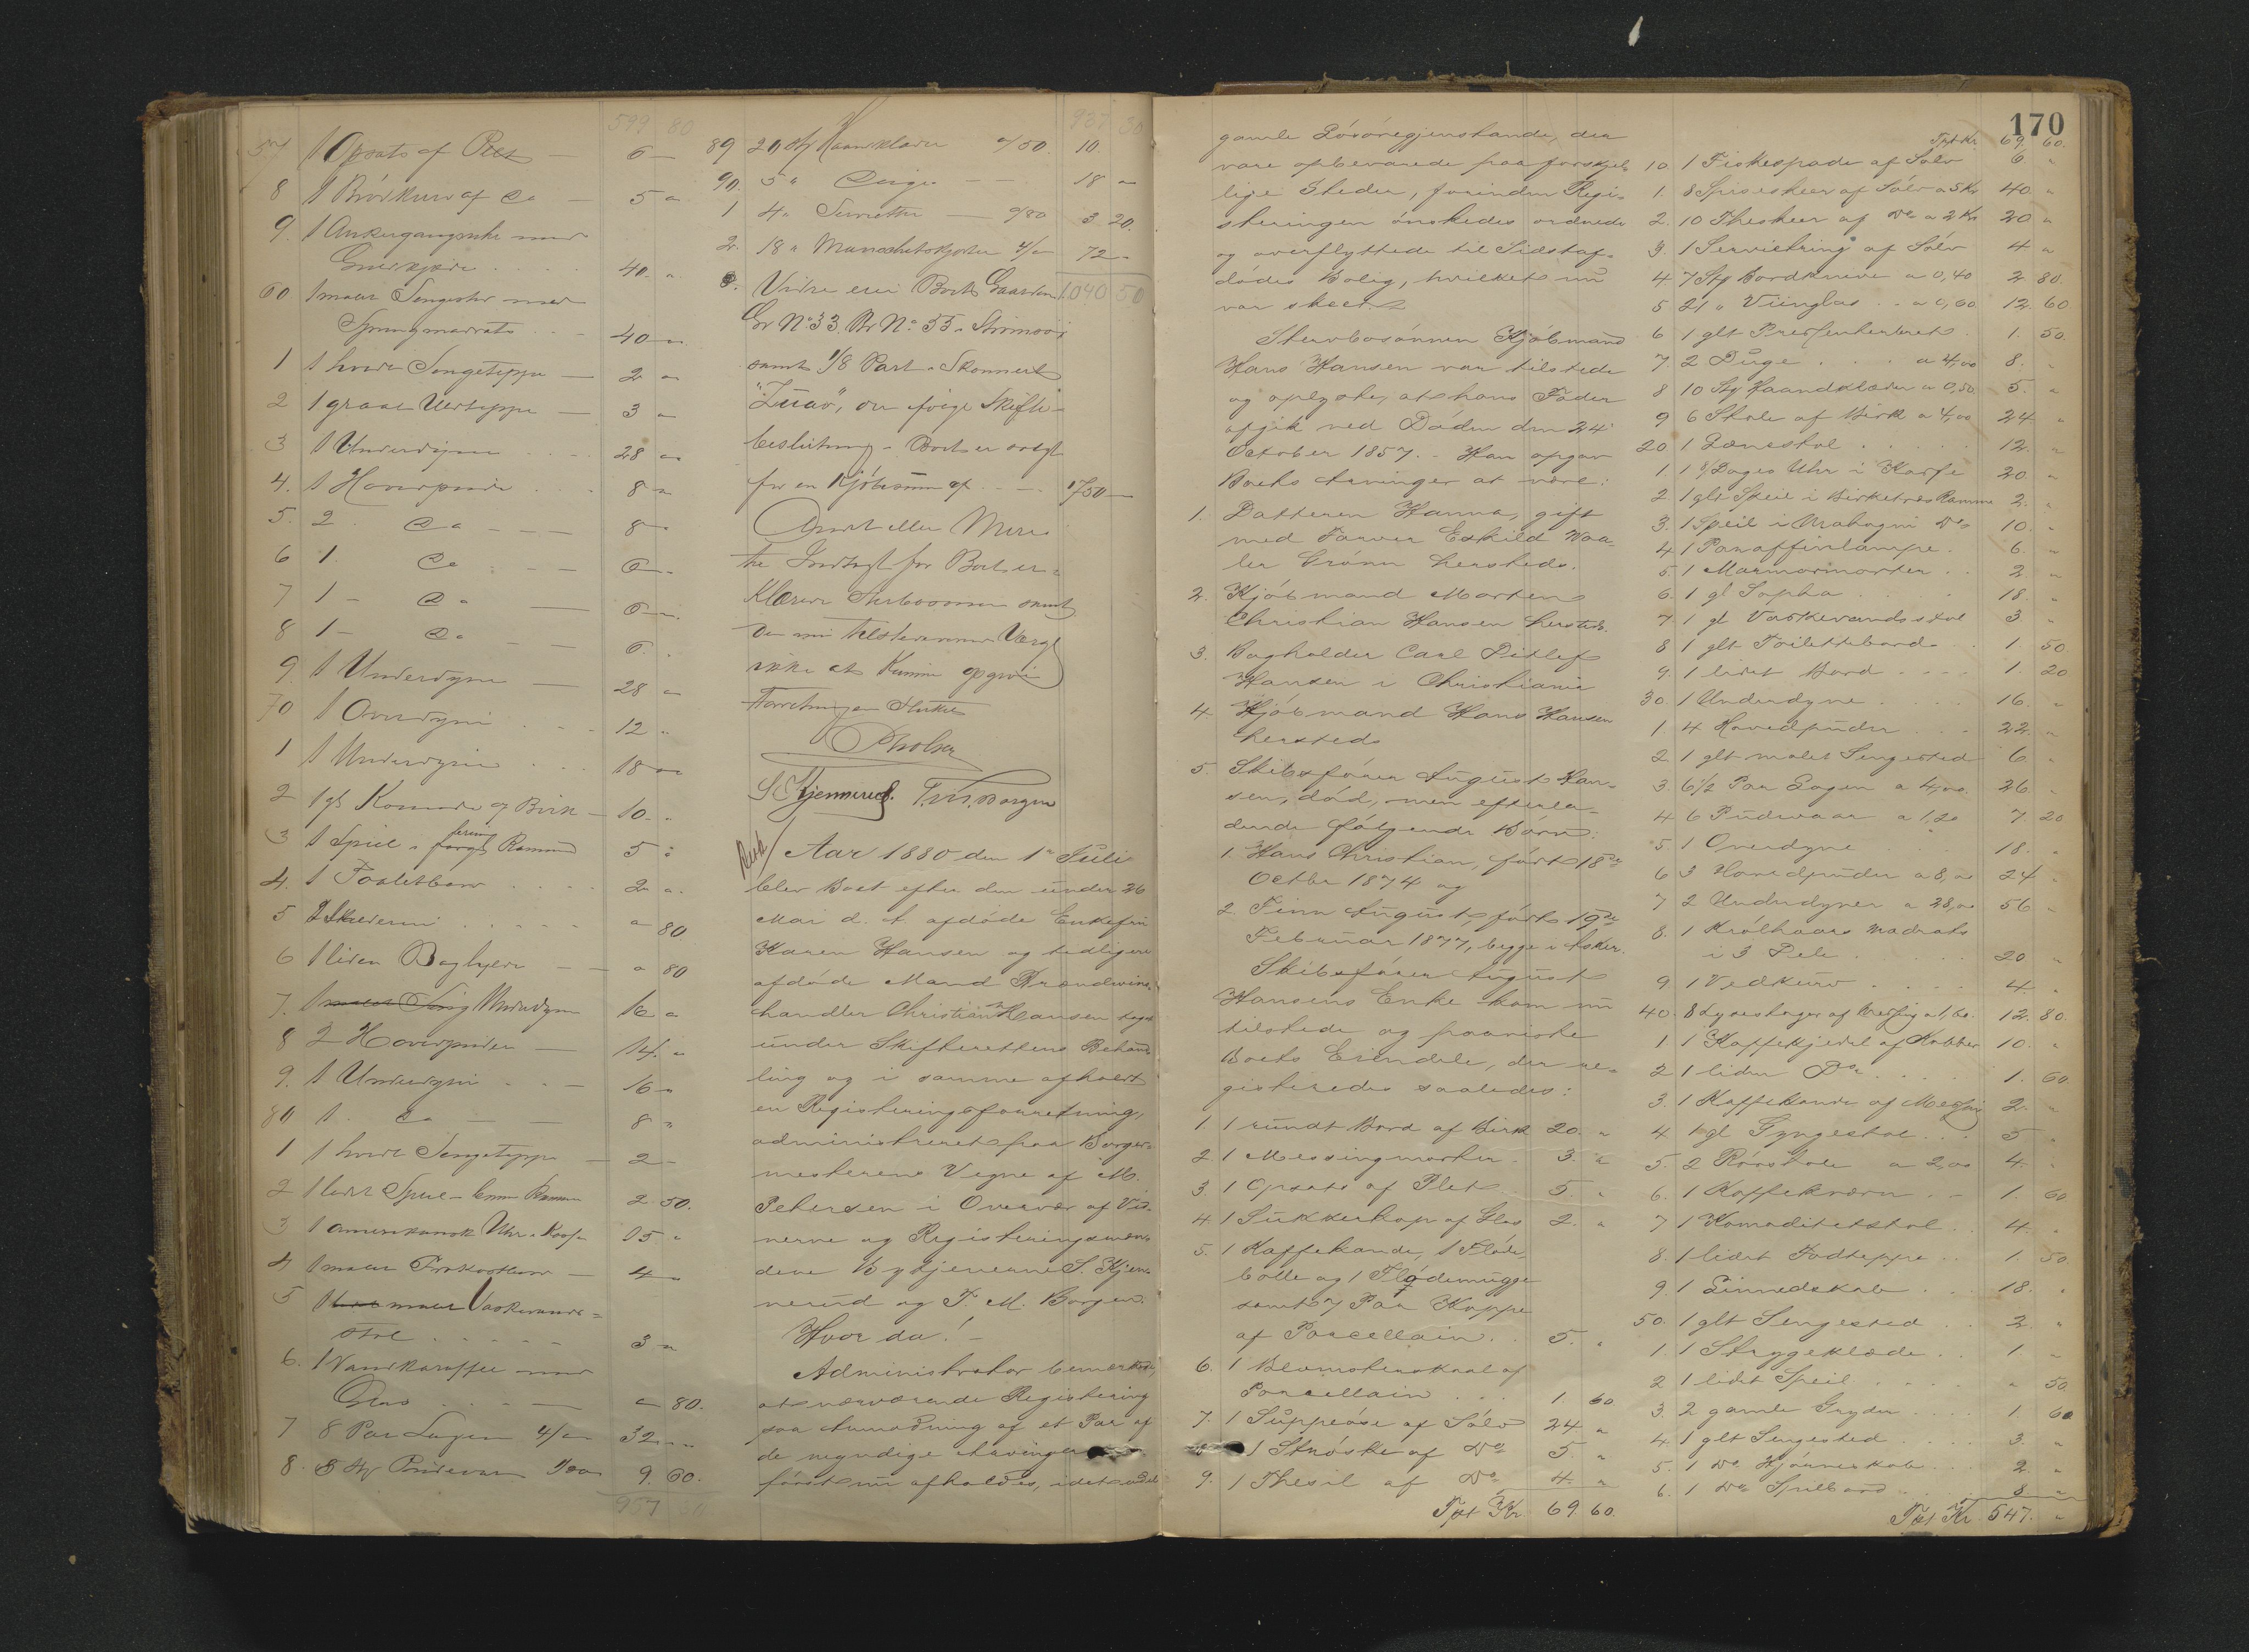 599 80
57 1 Opsats af Plet — 6 —
8 1 Brödkurv af Do — 5 "
9. 1 Ankergangsuhr med
40. "
60 1 malet Sengested med
Springmadrats . . 40 "
1 1 hvidt Sengeteppe — 2 "
2 1 graat Uldteppe — 3 "
3 1 Underdyne . . . 28 "
4. 1 Hovedpude . . . 8 "
5. 2. Do — — 8 "
6 1. Do . — — 6 —
7 1 - Do — 6 —
8 1 - Do — 6. .
9. 1 Underdyne — 28 "
70 1 Overdyne . . . 12 "
1 1 Underdyne . . . 18 "
2 1 gl Komode af Birk — 10. "
3 1 Speil i Ramme 5 "
4. 1 Toiletbord . . . . 2 "
5 . . . . . " 80
6 1 liden Boghylde — — " 80
7. 1 Underdyne 16 "
8 2 Hovedpuder — 14. "
9. 1 Underdyne . . — 16 "
80 1. Do — — 8 "
1 1 hvidt Sengeteppe — 2 -
2 1 lidet Speil i Ramme 2. 50.
3 1 amerikansk Uhr i Kasse 15 "
4 1 malet — 4 "
5 1 malet Vaskevands=
stol . . . . . 3 "
6. 1 Vandkaraffel med
Glas . . . — " 80.
7 8 Par Lagen 4/" 32 "
8. 8 Stk Pudevar 9. 60.
937 30
937 30
89 20 Stk Haandklæder a/50. 10.
90. 5 " Duge — — 18 "
1 4 " Servietter — a/80 3 20.
2. 18 " Manschetskjorter 4/" 72 "
Videre eier Boet Gaarden 1.040 50
Gr No 33 Br No 55 i Strömsö,
samt 1/8 Part i Skonnert
"Zuav", der ifölge Skifte-
beslutning i Boet er solgt
for en Kjöbesum af . . — 1750 —
Andet eller Mere
til Indtægt for Boet er-
klærede Sterbosönnen samt
den nu tilstedeværende Værge
ikke at kunne opgive
Forretningen sluttet
S. Kjennerud. T. M. Borgen
Aar 1880 den 1te Juli
blev Boet efter den under 26
Mai d. A. afdöde Enkefru
Karen Hansen og tidligere
afdöde Mand Brændevins-
handler Christian Hansen taget
under Skifterettens Behand-
ling og i samme afholdt
en Registreringsforretning,
administreret paa Borger-
mesterens Vegne af M.
Petersen i Overvær af Vid-
nerne og Registreringsmæn-
dene Bytjenerne S. Kjen-
nerud og T. M. Borgen.
Hvor da! -
Administrator bemærkede,
at nærværende Registrering
paa Anmodning af et Par af
de myndige Arvinger
först nu afholdes, idet en Del
170
gamle Lösöregjenstande, der
vare opbevarede paa forskjel-
lige Steder, forinden Regi-
streringen önskedes ordnede
og overflyttede til Sidstaf-
dödes Bolig, hvilket nu
var skeet.
Stervbosönnen Kjöbmand
Hans Hansen var tilstede
og oplyste, at hans Fader
afgik ved Döden den 24
October 1857. - Han opgav
Boets Arvinger at være:
1. Datteren Hanna, gift
med Farver Eskild Waa-
ler Grönn hersteds.
2. Kjöbmand Morten
Christian Hansen hersteds.
3. Bogholder Carl Ditlef
Hansen i Christiania
4 Kjöbmand Hans Hansen
hersteds
5. Skibsförer August Han-
sen, död, men efterla-
dende fölgende Börn:
1. Hans Christian, födt 18de
Octbr 1874 og
2. Finn August, födt 19de
Februar 1877, begge i Asker.
Skibsförer August
Hansens Enke kom nu
tilstede og paaviste
Boets Eiendele, der re-
gistreredes saaledes:
1 1 rundt Bord af Birk 20. "
2. 1 Messingmorter . 3. "
3. 1 Opsats af Plet . 5. "
4. 1 Sukkerkop af Glas 2. "
5. 1 Kaffekande, 1 Flöde-
bolle og 1 Flödemugge
samt 7 Par Koppe
af Porcellain . . 5. "
6. 1 Blomsterskaal af
Porcellain . . . 1. 60
7. 1 Suppeöse af Sölv 24 "
1 Ströske af Do 5. "
9. 1 Thesil af Do 4. "
Tpt Kr. 69. 60.
Tpt Kr. 69. 60.
10. 1 Fiskespade af Sölv 6 "
1. 8 Spiseskeer af Sölv a 5 Kr 40. "
2. 10 Theskeer af Do a 2 Kr 20 "
3. 1 Serviettring af Sölv 4 "
4 7 Stk Bordknive a 0,40 2. 80.
5 21 " Viinglas . . a 0,60 12. 60
6 1 glt Presenterbret . 1. 50.
7. 2 Duge . . . a 4,00 8. "
8 10 Stk Haandklæder a 0,50 5. "
9 6 Stole af Birk a 4,00 24 "
20 1 Lænestol . . . . 12. "
1 1 8/Dages Uhr i Kasse 20. "
2 1 glt Speil i Birketræs Ramme 2. "
3. 1 Speil i Mahogni Do 10. "
4 1 Paraffinlampe . 6. "
5. 1 Marmormorter . . 2 "
6. 1 gl Sopha . . . . 18. "
7. 1 gl Vaskevandsstol 3. "
8 1 glt Toilettebord . . 1. 50.
9. 1 lidet Bord . . . . 1. 20
30. 1 Underdyne . . . . 16. "
1. 4 Hovedpuder . . . 22. "
2 1 glt malet Sengested 6 "
3. 6 1/2 Par Lagen a 4,00. 26 "
4 6 Pudevaar a 1,20 7. 20
5. 1 Overdyne . . . 18. "
6 3 Hovedpuder a 8,00 24 "
7 2 Underdyner a 28,00 56 "
8. 1 Krølhaars Madrats
i 3 Dele . . . . . 20 "
9 1 Vedkurv . . . . 4. "
40. 8 Lysestager af Messing a 1,60. 12. 80.
1 1 Kaffekjedel af Kobber 10. "
2 1 liden Do . . . . 1. 60.
3. 1 Kaffekande af Messing 2. "
4 1 gl Gyngestol . . . 5 "
5. 2 Rörstole a 2,00 4. "
6. 1 Kaffekværn . - 1. 60
7 1 Komoditetstol . . 4. "
8. 1 lidet Fodteppe . . 1. 50.
9. 1 Linnedskab . . . 18. "
50. 1 glt Sengested . . 2. "
1. 1 Strygeklæde . . 1 "
2 1 lidet Speil . . . . " 50.
3. 2 gamle Gryder . . . 1. 60
4 1 glt Sengested . . . 3. "
5. 1 Do Hjörneskab . . . 2. "
6. 1 Do Spillbord . . . 8 "
Tpt Kr. 547. "